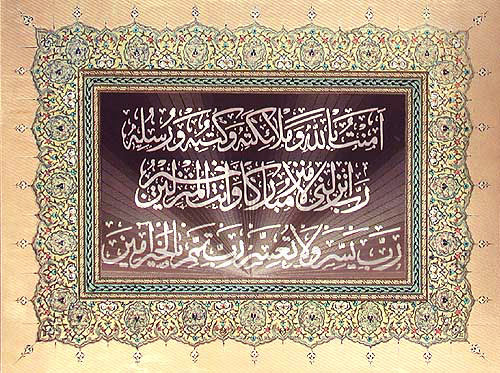 آمنت بالله وملائكته وكتبه ورسله
رب انزلني منزلا مباركا وانت خير المنزلين
رب يسر ولا تعسر رب تمم بالخير آمين